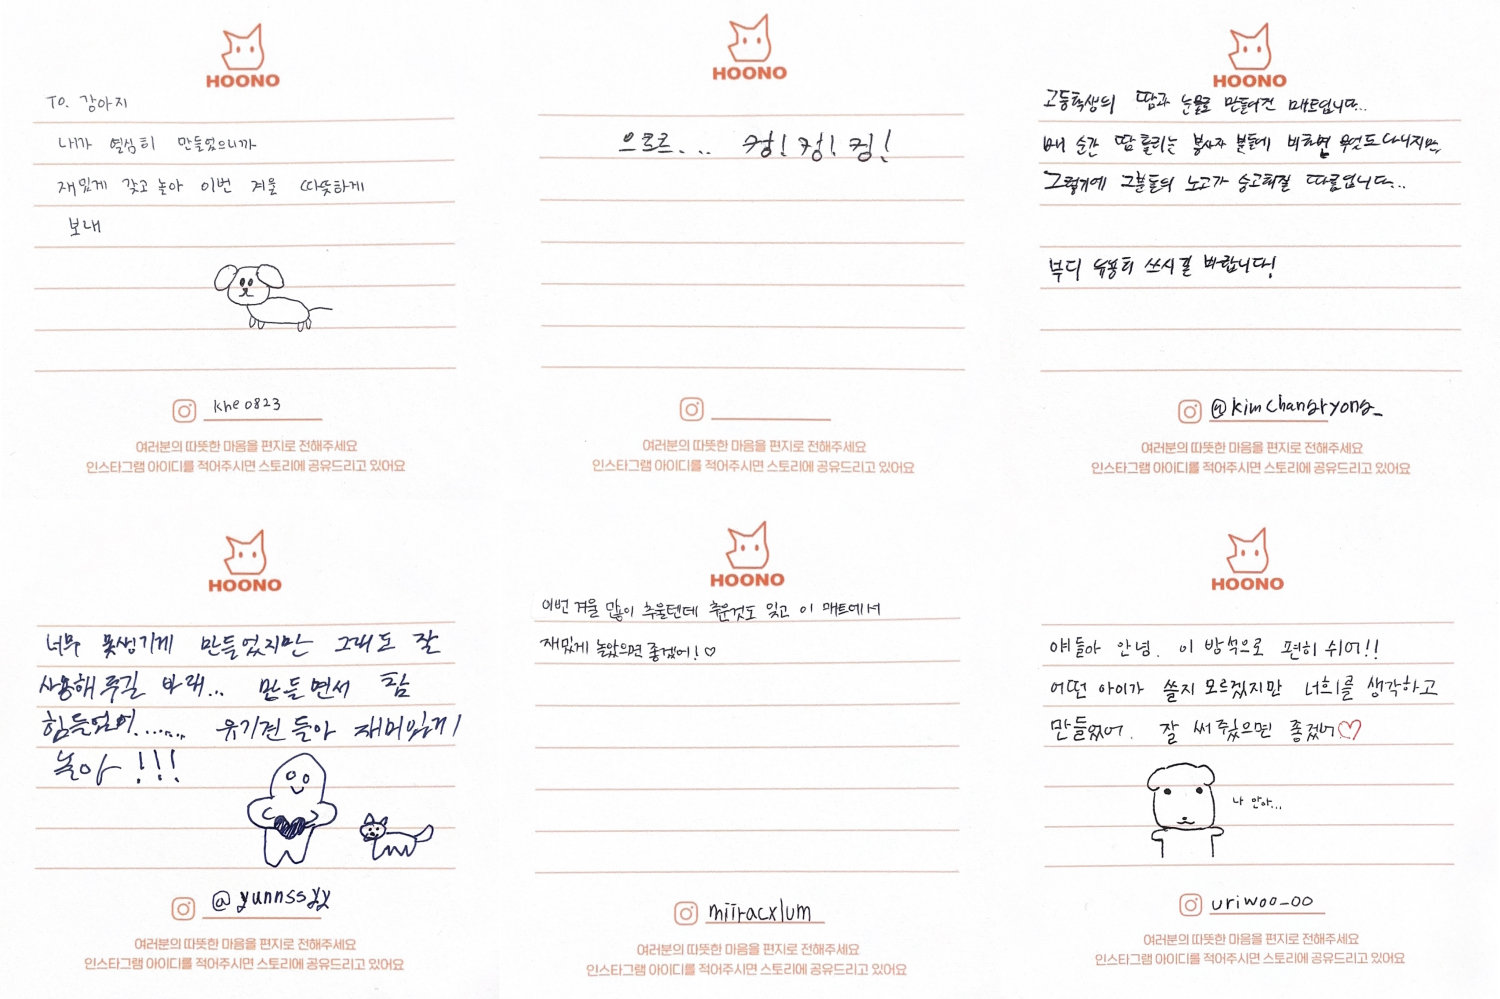 HOONO
TO. 강아지
내가 열심히 만들었으니까
재밌게 갖고 놀아 이번 겨울 따뜻하게
보내
khe0823
여러분의 따뜻한 마음을 편지로 전해주세요
인스타그램 아이디를 적어주시면 스토리에 공유드리고 있어요
HOONO
으르르... 컹! 컹! 컹!
여러분의 따뜻한 마음을 편지로 전해주세요
인스타그램 아이디를 적어주시면 스토리에 공유드리고 있어요
HOONO
고등학생의 땀과 눈물로 만들어진 매트입니다...
매 순간 땀 흘리는 봉사자 분들에 비하면 무엇도 아니지만,
그렇기에 그분들의 노고가 숭고해질 따름입니다...
부디 유용히 쓰시길 바랍니다!
@kimchangryong_
여러분의 따뜻한 마음을 편지로 전해주세요
인스타그램 아이디를 적어주시면 스토리에 공유드리고 있어요
HOONO
너무 못생기게 만들었지만 그래도 잘
사용해 주길 바래... 만들면서 참
힘들었어...... 유기견들아 재미있게
놀아!!!
@yunnssyy
여러분의 따뜻한 마음을 편지로 전해주세요
인스타그램 아이디를 적어주시면 스토리에 공유드리고 있어요
HOONO
이번 겨울 많이 추울텐데 추운것도 잊고 이 매트에서
재밌게 놀았으면 좋겠어!♡
miiracxlum
여러분의 따뜻한 마음을 편지로 전해주세요
인스타그램 아이디를 적어주시면 스토리에 공유드리고 있어요
HOONO
얘들아 안녕. 이 방석으로 편히 쉬어!!
어떤 아이가 쓸지 모르겠지만 너희를 생각하고
만들었어. 잘 써줬으면 좋겠어♡
나 안아...
uriwoo_oo
여러분의 따뜻한 마음을 편지로 전해주세요
인스타그램 아이디를 적어주시면 스토리에 공유드리고 있어요